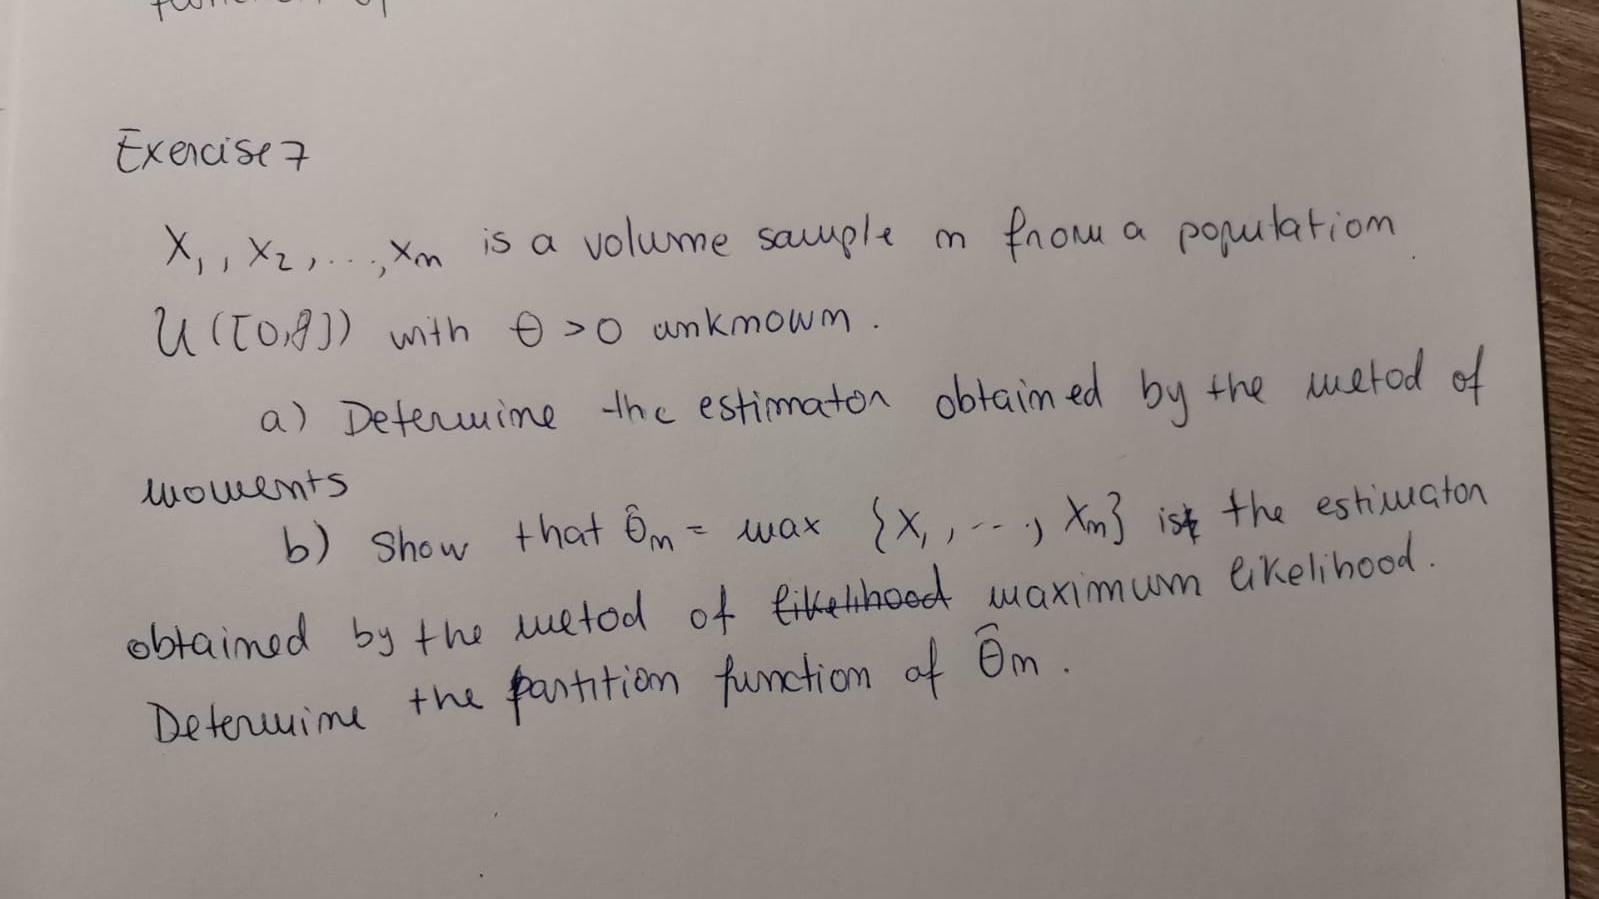 Exercise 7
X1, X2, ..., Xn is a volume sample n from a population
U([0,θ]) with θ >0 unknown.
a) Determine the estimator obtained by the metod of
moments
b) Show that θ̂n = max {X1, ..., Xn} is the estimator
obtained by the metod of likelihood maximum likelihood.
Determine the partition function of θ̂n.